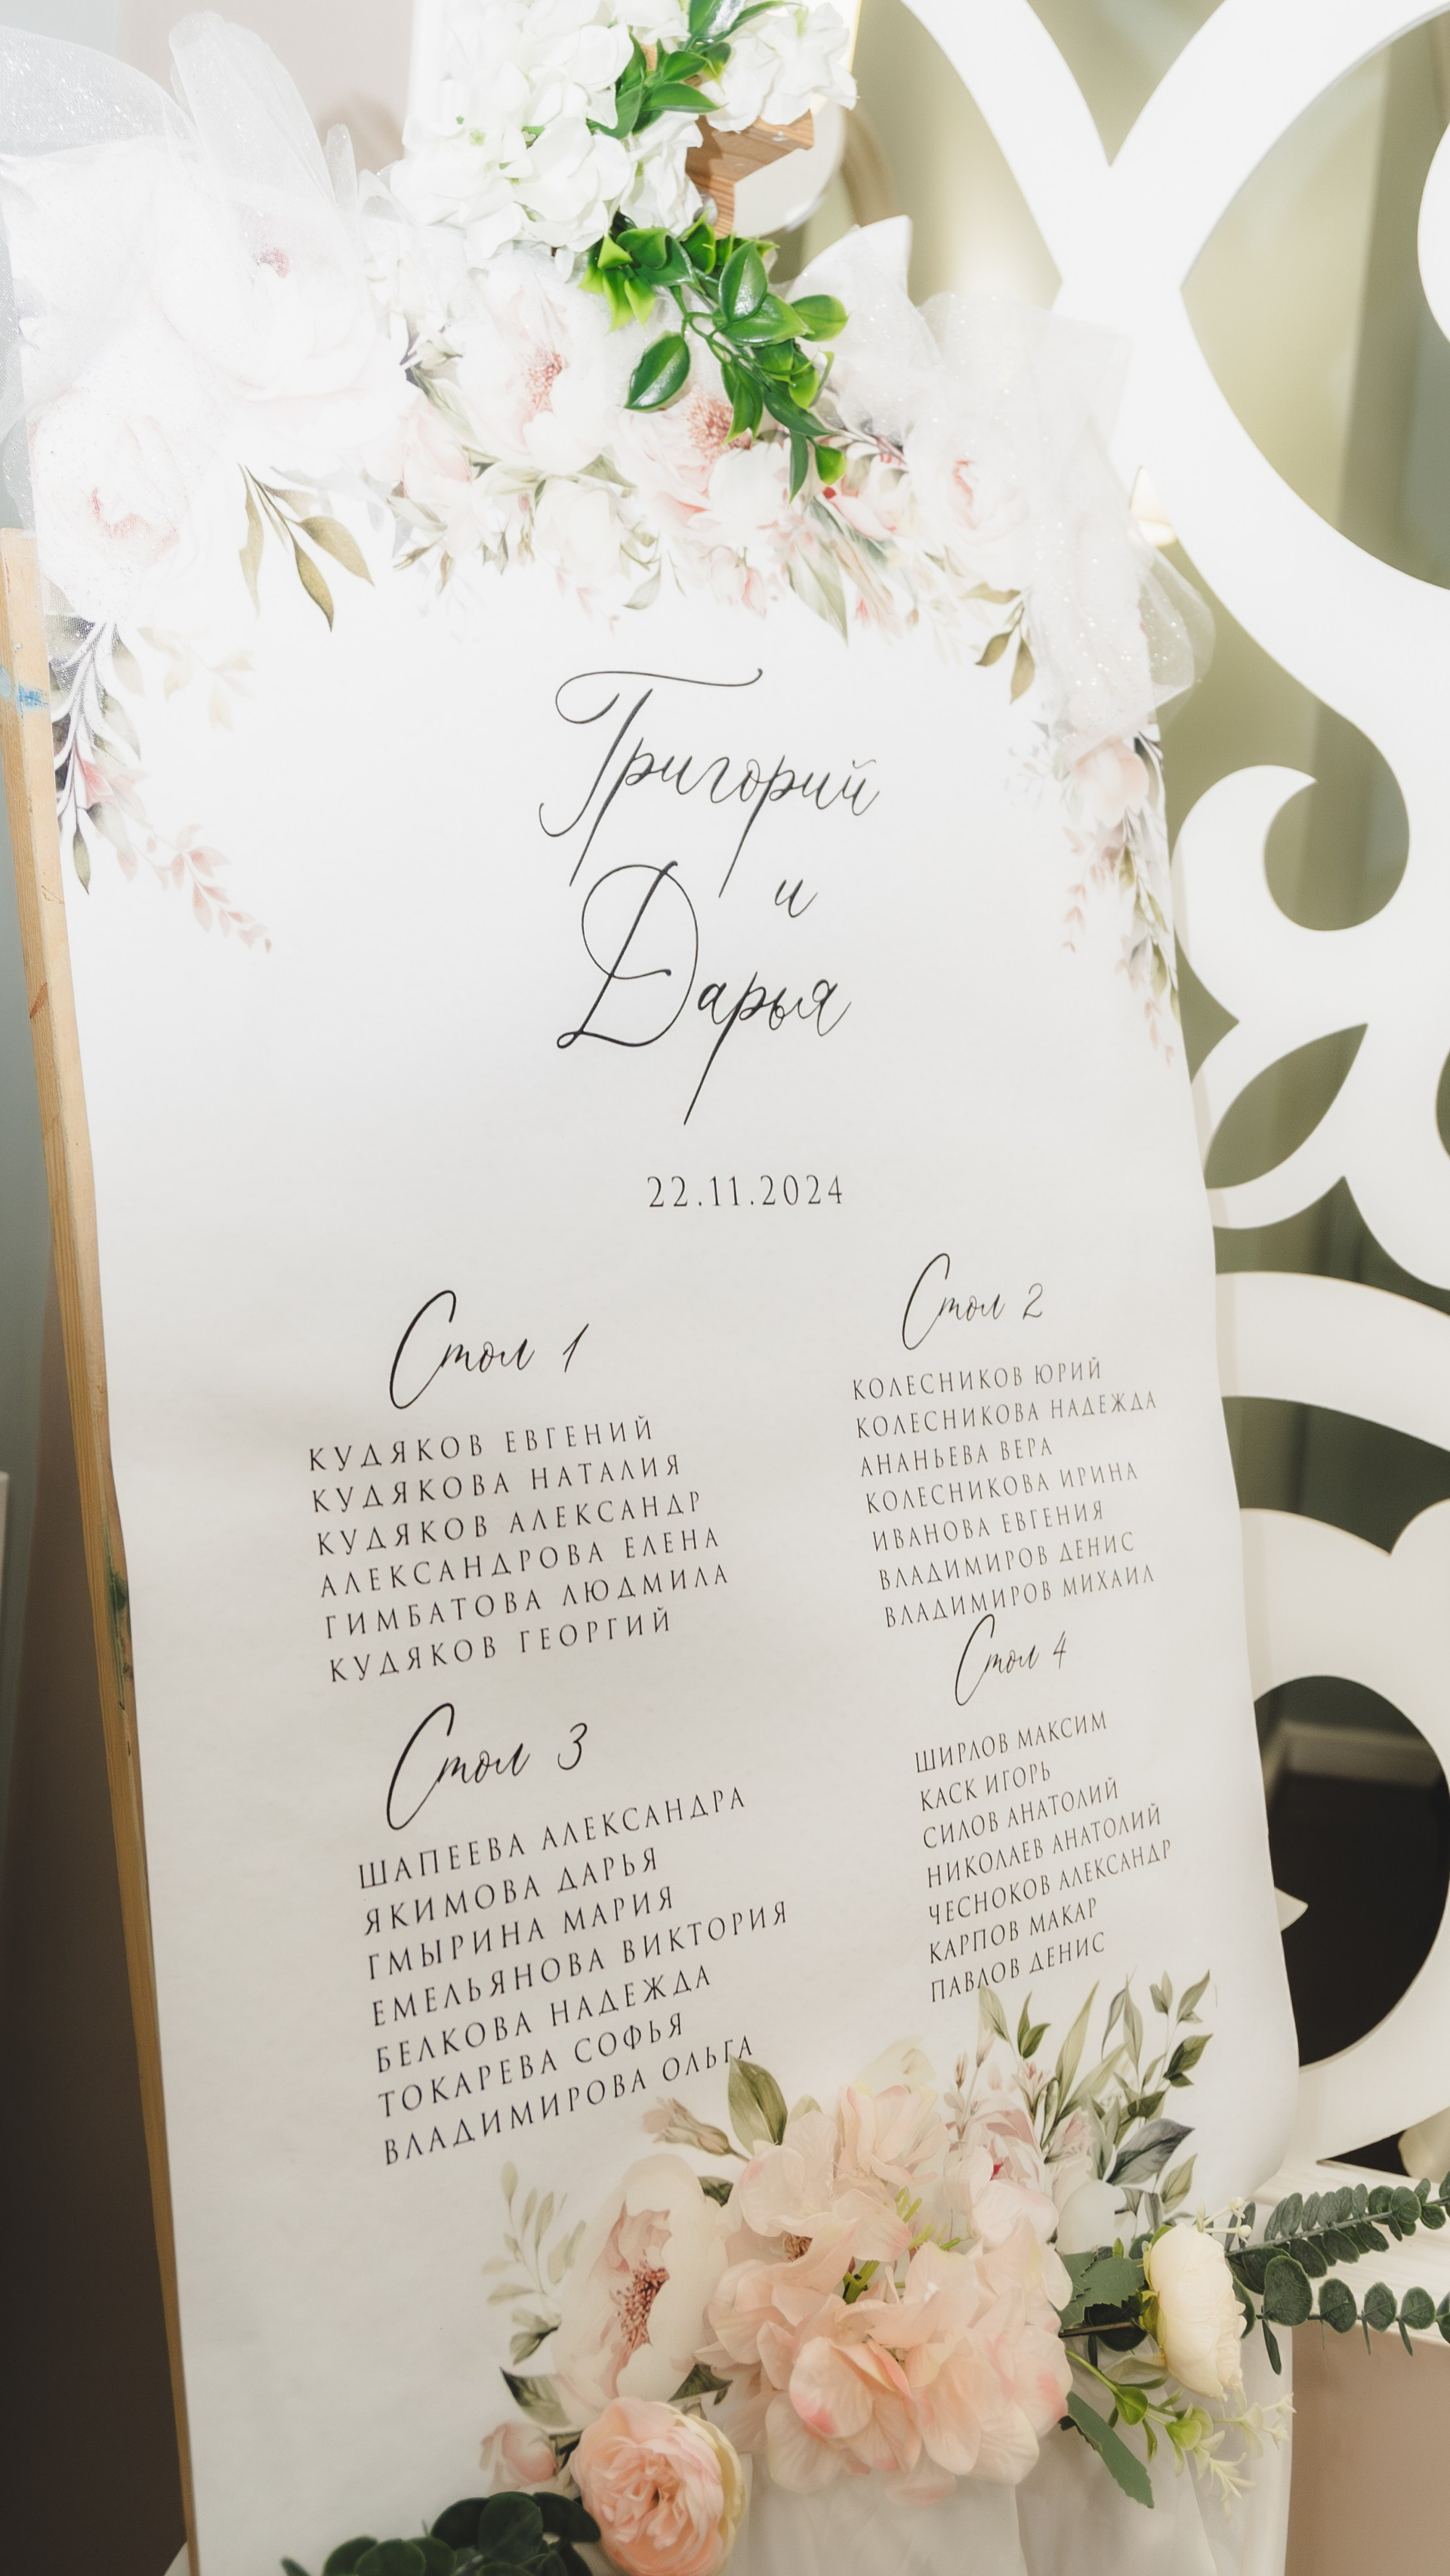 Григорий
и
Дарья
22.11.2024
Стол 1
КУДЯКОВ ЕВГЕНИЙ
КУДЯКОВА НАТАЛИЯ
КУДЯКОВ АЛЕКСАНДР
АЛЕКСАНДРОВА ЕЛЕНА
ГИМБАТОВА ЛЮДМИЛА
КУДЯКОВ ГЕОРГИЙ
Стол 2
КОЛЕСНИКОВ ЮРИЙ
КОЛЕСНИКОВА НАДЕЖДА
АНАНЬЕВА ВЕРА
КОЛЕСНИКОВА ИРИНА
ИВАНОВА ЕВГЕНИЯ
ВЛАДИМИРОВ ДЕНИС
ВЛАДИМИРОВ МИХАИЛ
Стол 3
ШАПЕЕВА АЛЕКСАНДРА
ЯКИМОВА ДАРЬЯ
ГМЫРИНА МАРИЯ
ЕМЕЛЬЯНОВА ВИКТОРИЯ
БЕЛКОВА НАДЕЖДА
ТОКАРЕВА СОФЬЯ
ВЛАДИМИРОВА ОЛЬГА
Стол 4
ШИРЛОВ МАКСИМ
КАСК ИГОРЬ
СИЛОВ АНАТОЛИЙ
НИКОЛАЕВ АНАТОЛИЙ
ЧЕСНОКОВ АЛЕКСАНДР
КАРПОВ МАКАР
ПАВЛОВ ДЕНИС